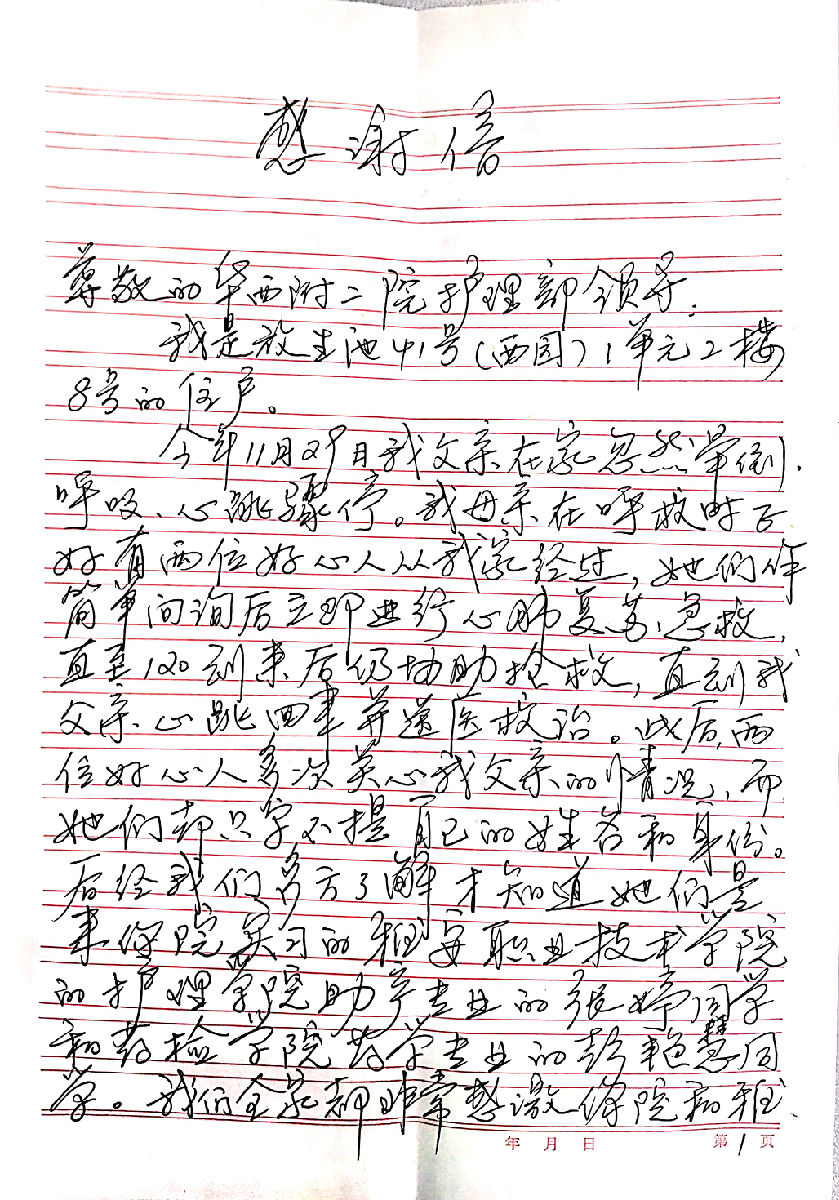 感谢信
尊敬的华西附二院护理部领导:
我是放生池41号(西园)1单元2楼
8号的住户。
今年11月29日我父亲在家忽然晕倒,
呼吸、心跳骤停。我母亲在呼救时正
好有两位好心人从我家经过,她们作
简单问询后立即进行心肺复苏急救,
直至120到来后仍协助抢救,直到我
父亲心跳回来并送医救治。此后,两
位好心人多次关心我父亲的情况,而
她们却只字不提自己的姓名和身份。
后经我们多方了解才知道她们是
来你院实习的雅安职业技术学院
的护理学院助产专业的张婷同学
和药检学院药学专业的彭艳慧同
学。我们全家都非常感激你院和雅
年 月 日 第1页